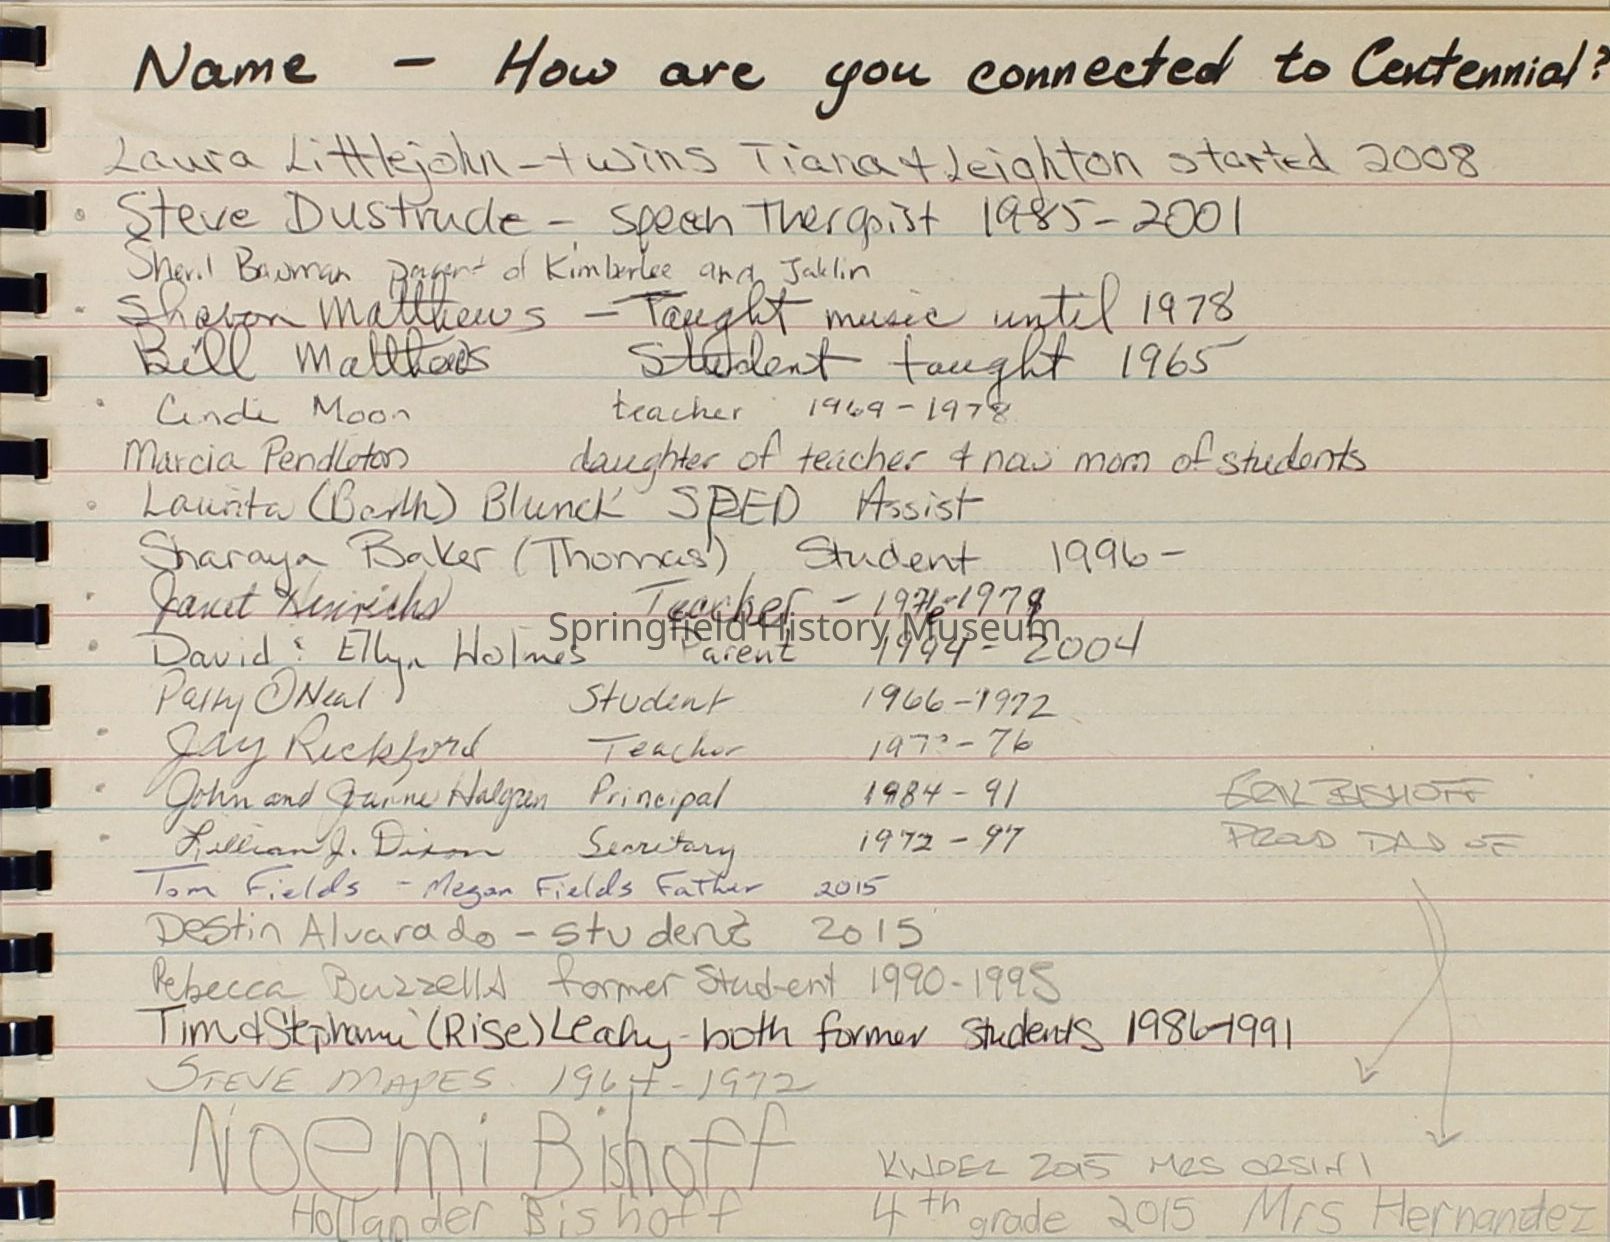 Name - How are you connected to Centennial?
Laura Littlejohn - twins Tiana & Leighton started 2008
Steve Dustrude - Speech Therapist 1985-2001
Sheril Bowman parent of Kimberlee and Jaklin
Sharon Matthews - Taught music until 1978
Bill Matthews Student taught 1965
Cindi Moon teacher 1969-1978
Marcia Pendleton daughter of teacher & now mom of students
Laurita (Barth) Blunck SPED Assist
Sharaya Baker (Thomas) Student 1996-
Janet Hinrichs Teacher - 1976-1979
Springfield History Museum
David & Ellyn Holmes Parent 1994-2004
Patty O'Neal Student 1966-1972
Jay Reckford Teacher -76
John and Jeanne Halgren Principal 1984-91
ERIK BISHOFF
Lillian J. Dixon Secretary 1972-97
PROUD DAD OF
Tom Fields - Megan Fields Father 2015
Destin Alvarado - student 2015
Rebecca Buzzell former Student 1990-1995
Tim & Stephanie (Rise) Leahy - both former students 1986-1991
STEVE MAPES 1964-1972
Noemi Bishoff KINDER 2015 MRS ORSINI
Hollander Bishoff 4th grade 2015 Mrs Hernandez